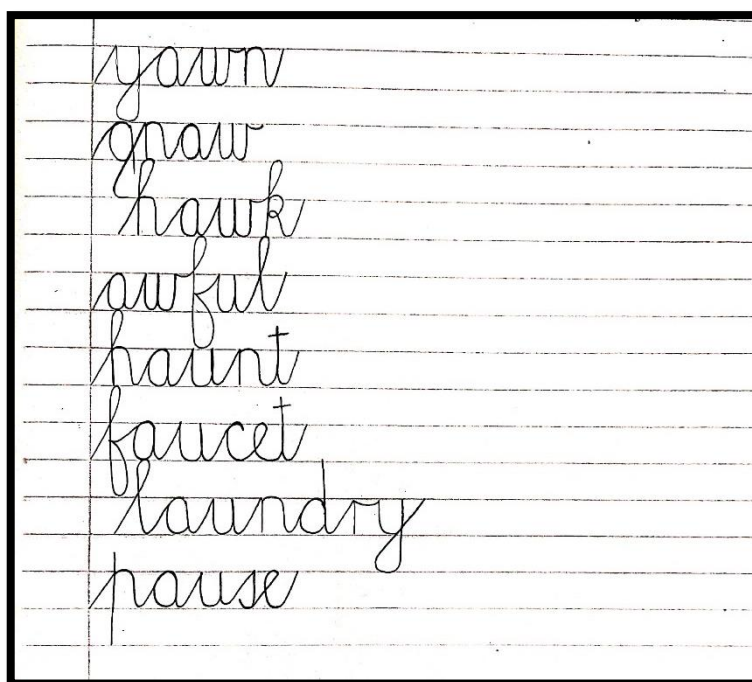 yawn
gnaw
hawk
awful
haunt
faucet
laundry
pause